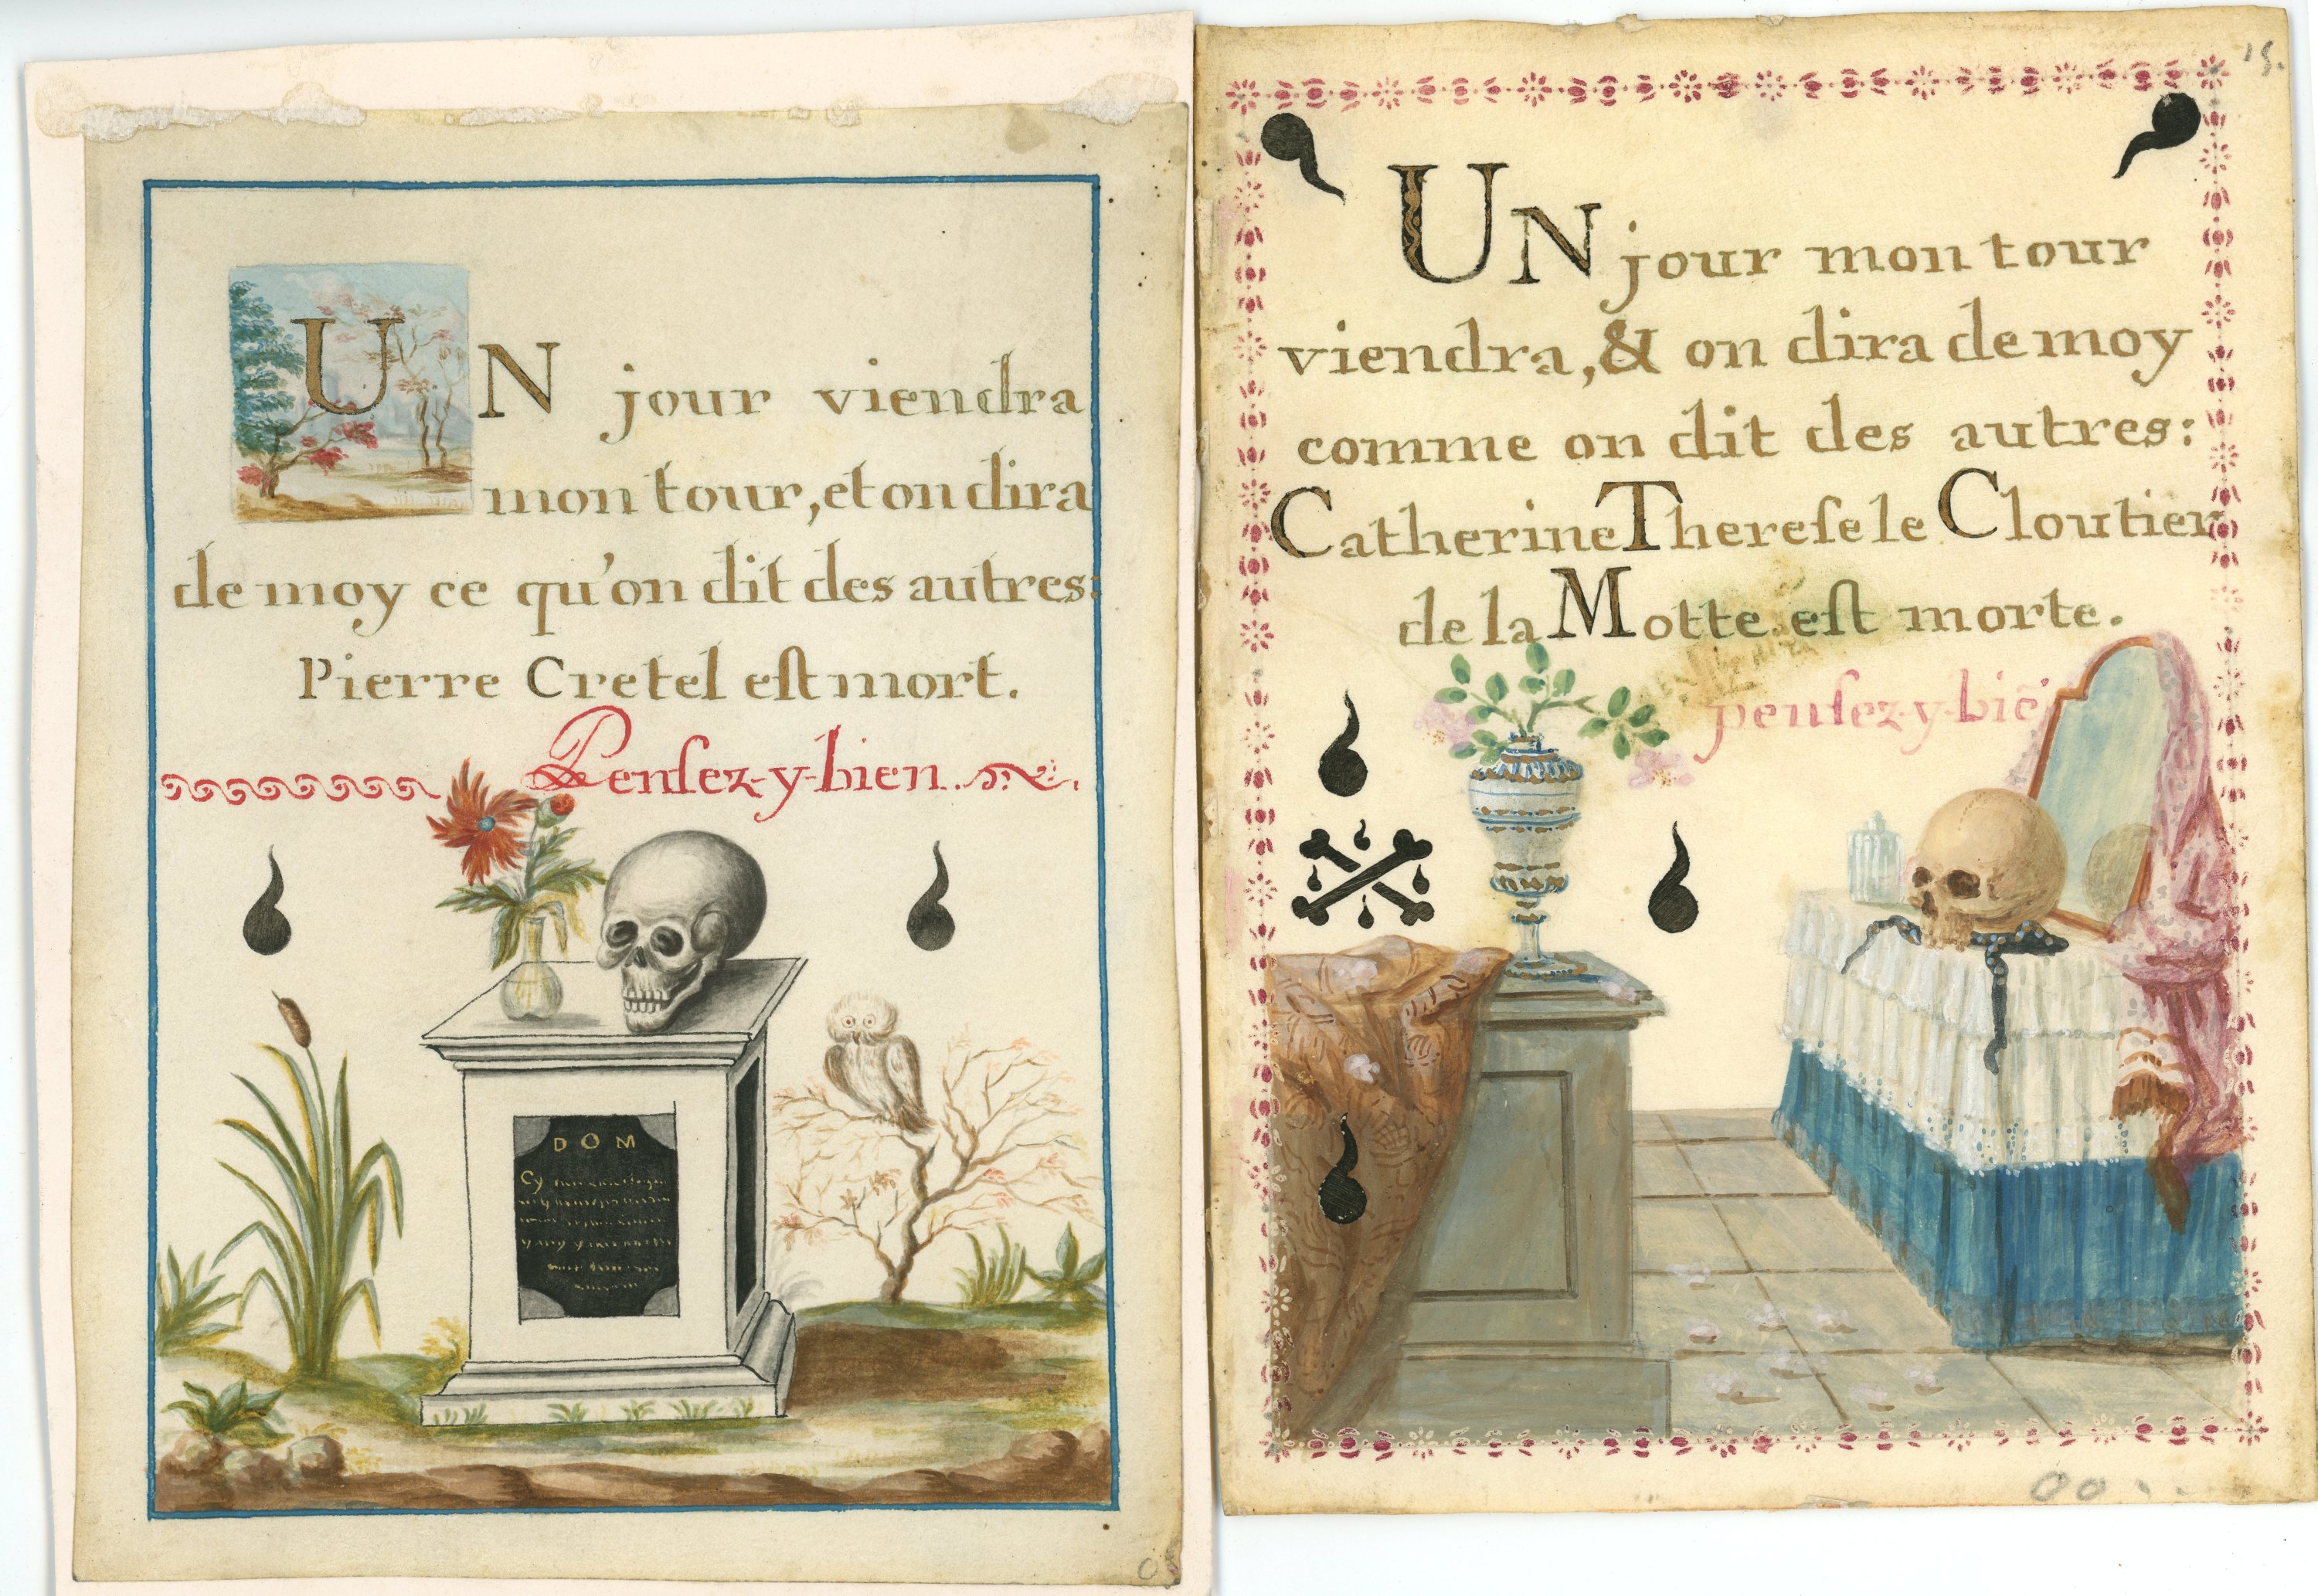 UN jour viendra
mon tour, et on dira
de moy ce qu'on dit des autres:
Pierre Cretel eſt mort.
Penſez-y-bien.
DOM
Cy
15.
UN jour mon tour
viendra, & on dira de moy
comme on dit des autres:
Catherine Thereſe le Cloutier
de la Motte eſt morte.
penſez-y-biē